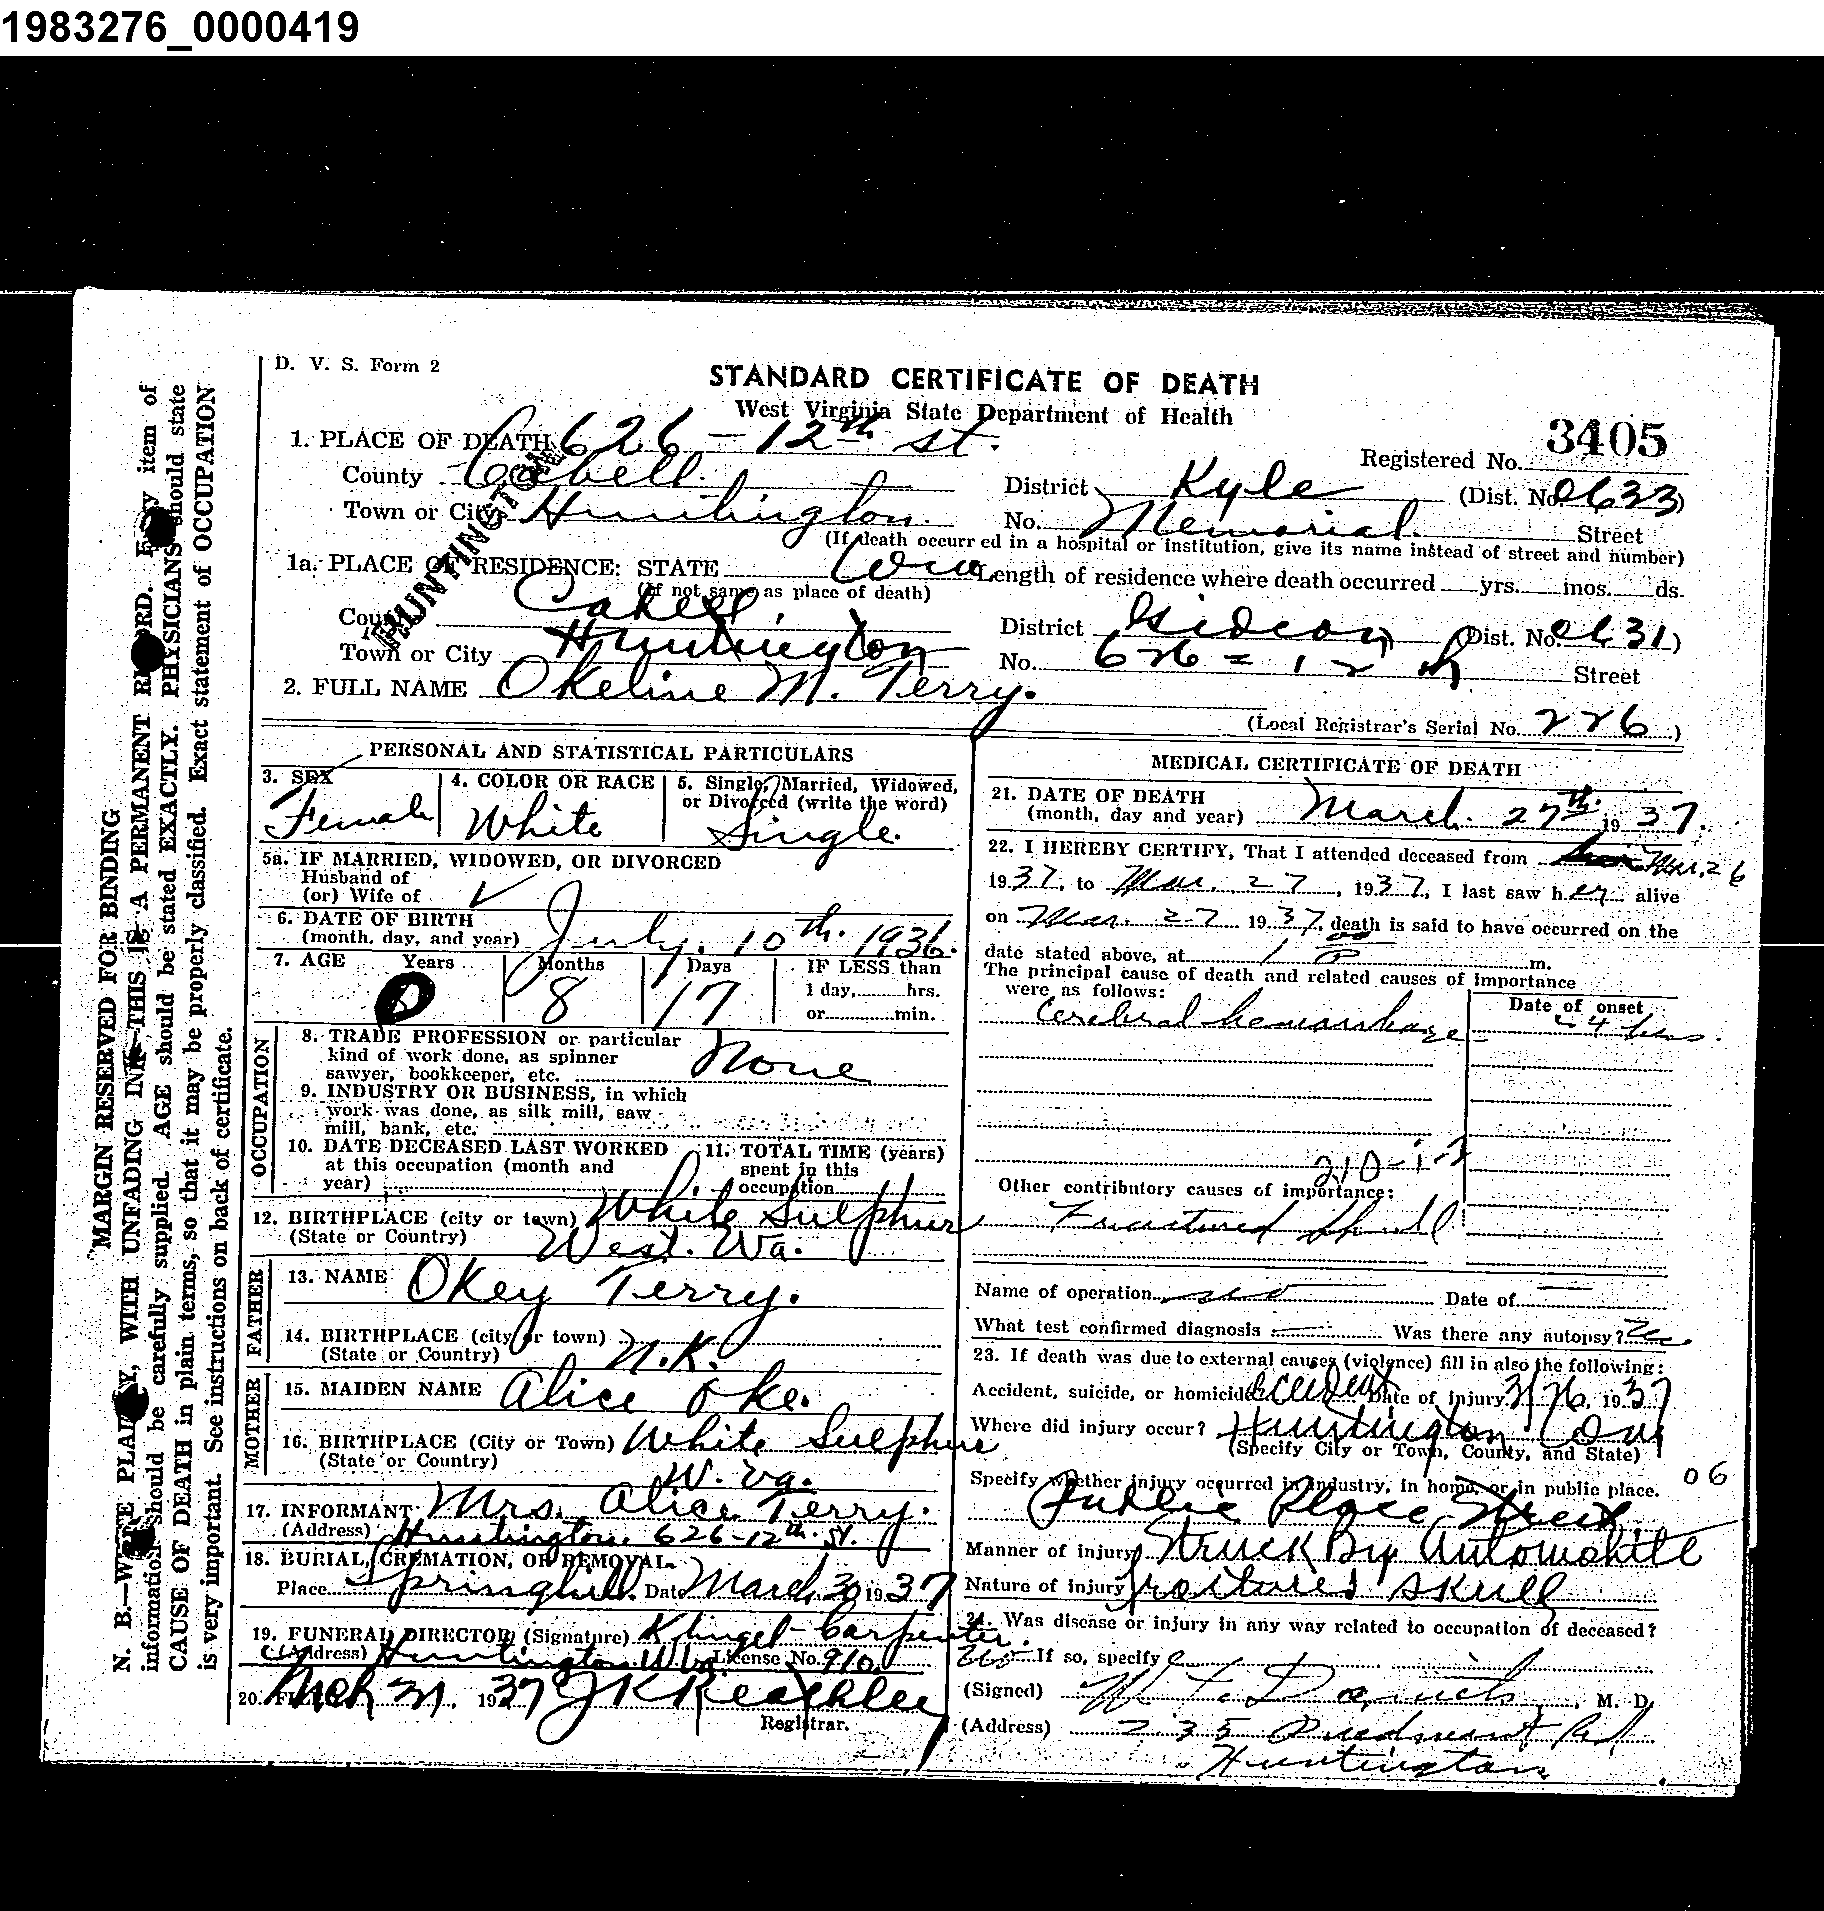 1983276_0000419
D. V. S. Form 2
STANDARD CERTIFICATE OF DEATH
West Virginia State Department of Health
1. PLACE OF DEATH 626 - 12th St.
Registered No. 3405
County Cabell. District Kyle (Dist. No. 0633)
HUNTINGTON
Town or City Huntington. No. Memorial. Street
(If death occurred in a hospital or institution, give its name instead of street and number)
1a. PLACE OF RESIDENCE: STATE Length of residence where death occurred yrs. mos. ds.
(If not same as place of death)
County Cabell District Gideon (Dist. No. 0631)
Town or City Huntington No. 626 = 12 th Street
2. FULL NAME Okeline M. Terry.
(Local Registrar's Serial No. 226)
PERSONAL AND STATISTICAL PARTICULARS
3. SEX Female
4. COLOR OR RACE White
5. Single, Married, Widowed, or Divorced (write the word) Single.
5a. IF MARRIED, WIDOWED, OR DIVORCED
Husband of
(or) Wife of
6. DATE OF BIRTH
(month, day, and year) July. 10th. 1936.
7. AGE Years Months Days IF LESS than
0 8 17 1 day, hrs.
or min.
OCCUPATION
8. TRADE PROFESSION or particular
kind of work done, as spinner
sawyer, bookkeeper, etc. None
9. INDUSTRY OR BUSINESS, in which
work was done, as silk mill, saw
mill, bank, etc.
10. DATE DECEASED LAST WORKED
at this occupation (month and
year)
11. TOTAL TIME (years)
spent in this
occupation
12. BIRTHPLACE (city or town) White Sulphur
(State or Country) West. Va.
FATHER
13. NAME Okey Terry.
14. BIRTHPLACE (city or town)
(State or Country) N.K.
MOTHER
15. MAIDEN NAME Alice Oke.
16. BIRTHPLACE (City or Town) White Sulphur
(State or Country) W. Va.
17. INFORMANT Mrs. Alice Terry.
(Address) Huntington. 626-12th. St.
18. BURIAL, CREMATION, OR REMOVAL
Place Springhill. Date March 30 1937
19. FUNERAL DIRECTOR (Signature) Klingel-Carpenter.
(Address) Huntington W.Va. License No. 910
20. FILED Mch 31. 1937
Registrar.
MEDICAL CERTIFICATE OF DEATH
21. DATE OF DEATH
(month, day and year) March. 27th. 1937.
22. I HEREBY CERTIFY, That I attended deceased from Mar. 26
1937, to Mar. 27, 1937, I last saw her alive
on Mar. 27 1937, death is said to have occurred on the
date stated above, at m.
The principal cause of death and related causes of importance
were as follows: Date of onset
Cerebral hemorrhage
210-1-2
Other contributory causes of importance:
Fractured Skull
Name of operation no Date of
What test confirmed diagnosis Was there any autopsy? No.
23. If death was due to external causes (violence) fill in also the following:
Accident, suicide, or homicide? accident Date of injury 3/26, 1937
Where did injury occur? Huntington
(Specify City or Town, County, and State)
Specify whether injury occurred in industry, in home, or in public place. 06
Public Place Street
Manner of injury Struck By Automobile
Nature of injury skull
24. Was disease or injury in any way related to occupation of deceased?
no If so, specify
(Signed) M. D.
(Address) 235 Piedmont Rd
Huntington
MARGIN RESERVED FOR BINDING
N. B.—WRITE PLAINLY, WITH UNFADING INK—THIS IS A PERMANENT RECORD. Every item of
information should be carefully supplied. AGE should be stated EXACTLY. PHYSICIANS should state
CAUSE OF DEATH in plain terms, so that it may be properly classified. Exact statement of OCCUPATION
is very important. See instructions on back of certificate.